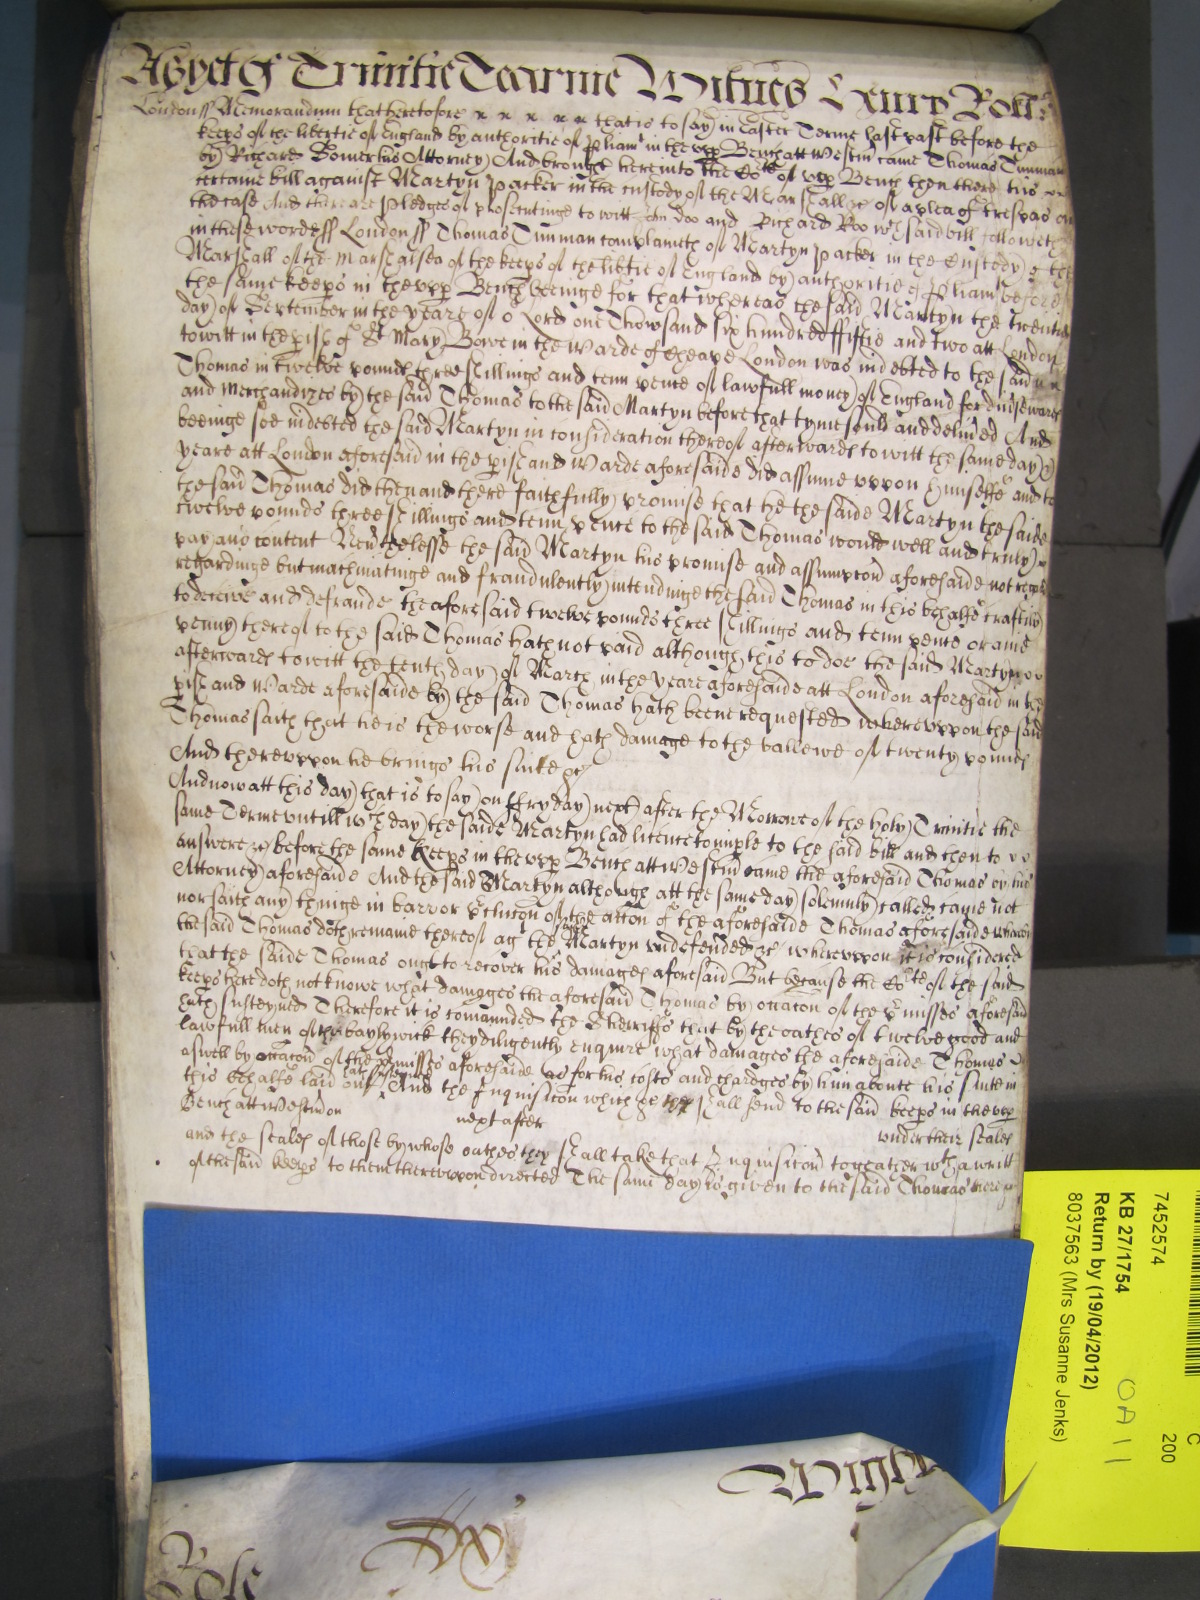 As yet of Trinitie Tearme Witnes Henry Rolle
London ss Memorandum that heretofore x x x x x that is to say in Easter Terme last past before the
keeps of the libertie of England by authoritie of Parliam in the upp Bench att Westm came Thomas Tinman
by Richard his Attorney And brought here into the Co of upp Bench then there his
certaine bill against Martyn Packer in the custody of the Marshall &c of a plea of trespas on
the case And there are pledges of prosecutinge to witt John Doo and Richard Roo wch said bill followeth
in these words ss London ss Thomas Tinman complaineth of Martyn Packer in the Custody of the
Marshall of the Marshalsea of the keeps of the libtie of England by authoritie of Pliam before
the same keeps in the upp Bench beeinge for that whereas the said Martyn the twentith
day of September in the yeare of o Lord one Thowsand six hundred fiftie and two att London
to witt in the pish of St Mary Bowe in the Warde of Cheape London was indebted to the said
Thomas in twelve pounds three shillings and tenn pence of lawfull money of England for divse wares
and Merchandizes by the said Thomas to the said Martyn before that tyme sould and delived And
beeinge soe indebted the said Martyn in consideration thereof afterwards to witt the same day &
yeare att London aforesaid in the pish and Warde aforesaide did assume uppon himselfe and to
the said Thomas did then and there faithfully promise that he the saide Martyn the saide
twelve pounds three shillings and tenn pence to the said Thomas would well and truly
pay and content Nevthelesse the said Martyn his promise and assumpcon aforesaide not
regardinge but machinatinge and fraudulently intendinge the said Thomas in this behalfe craftily
to deceive and defraude the aforesaid twelve pounds three shillings and tenn pence or anie
penny thereof to the said Thomas hath not paid although this to doe the said Martyn
afterwards to witt the tenth day of March in the yeare aforesaide att London aforesaid in the
pish and Warde aforesaide by the said Thomas hath beene requested whereuppon the said
Thomas saith that he is the worse and hath damage to the vallewe of twenty pounds
And thereuppon he brings his suite &c
And now att this day that is to say on ffryday next after the Morrowe of the holy Trinitie the
same Terme untill wch day the saide Martyn had licence to imple to the said bill and then to
answere &c before the same keeps in the upp Bench att Westm came the aforesaid Thomas by his
Attorney aforesaide And the said Martyn although att the same day solemnly called came not
nor saith any thinge in barr or pclucon of the accon of the aforesaide Thomas aforesaide whereby
the said Thomas doth remaine thereof ag the said Martyn undefended &c whereuppon it is considered
that the saide Thomas ought to recover his damages aforesaid But because the Co of the said
keeps here doth not knowe what damages the aforesaid Thomas by occacon of the pmisses aforesaid
hath susteyned Therefore it is comaunded the Sherriffs that by the oathes of twelve good and
lawfull men of the baylywick they diligently enquire what damages the aforesaide Thomas
aswell by occacon of the pmisses aforesaide as for his costs and chardges by him aboute his suite in
this behalfe laid out And the Inquisicon which &c they shall send to the said keeps in the upp
Bench att Westm on next after under their seales
and the seales of those by whose oathes they shall take that Inquisicon togeather wth a writt
of the said keeps to them thereuppon directed The same day is given to the said Thomas there
7452574
KB 27/1754
Return by (19/04/2012)
8037563 (Mrs Susanne Jenks)
C
200